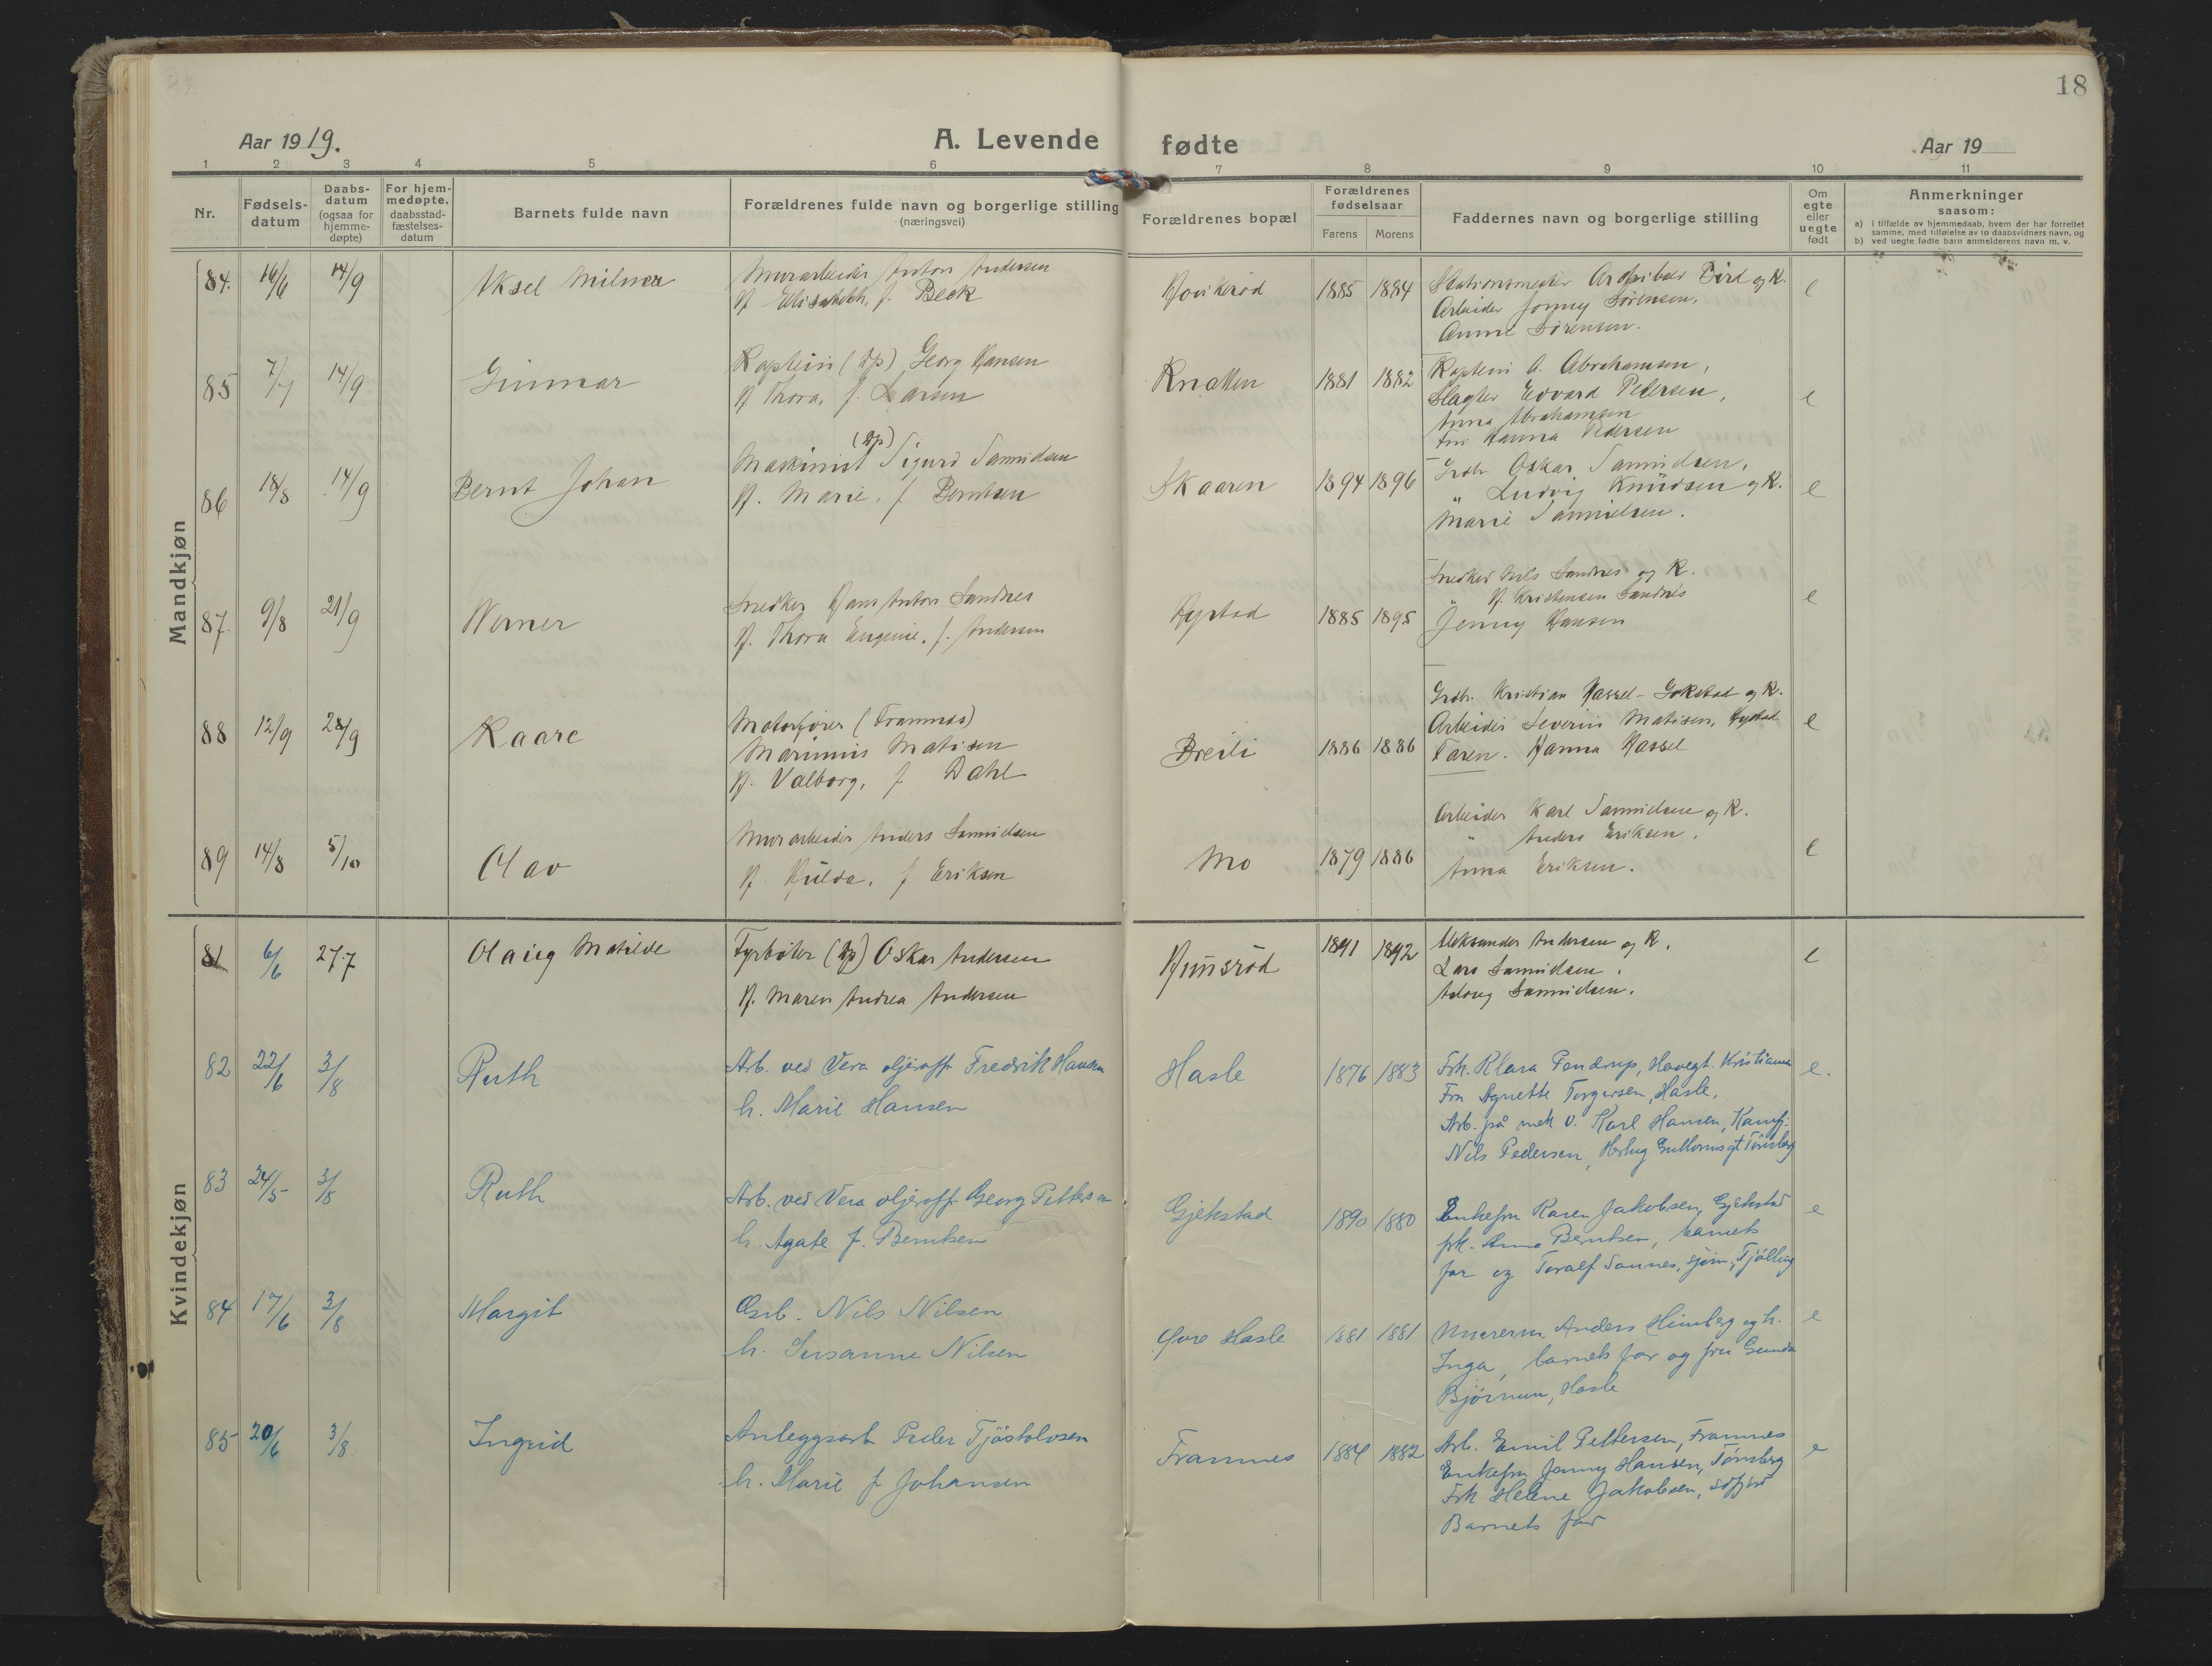 18
Aar 1919.
A. Levende fødte
Aar 19
1 2 3 4 5 6 7 8 9 10 11
Nr.
Fødsels-
datum
Daabs-
datum
(ogsaa for
hjemme-
døpte)
For hjem-
medøpte,
daabsstad-
fæstelses-
datum
Barnets fulde navn
Forældrenes fulde navn og borgerlige stilling
(næringsvei)
Forældrenes bopæl
Forældrenes
fødselsaar
Farens Morens
Faddernes navn og borgerlige stilling
Om
egte
eller
uegte
født
Anmerkninger
saasom:
a) i tilfælde av hjemmedaab, hvem der har forrettet
samme, med tilføielse av to daabsvidners navn, og
b) ved uegte fødte barn anmelderens navn m. v.
Mandkjøn
84. 16/6 14/9
Aksel Milner
Murarbeider Anton Andersen
H. Elisabeth, f. Beck
1885 1884
Stationsmester Archibald Bird og K.
Arbeider Jonny Sørensen,
Anna Sørensen.
e
85 7/7 14/9
Gunnar
Kaptein (Hp) Georg Hansen
H. Thora, f. Larsen
Knatten
1881 1882
Kaptein A. Abrahamsen,
Slagter Edvard Pedersen,
Anna Abrahamsen
Fru Hanna Pedersen
e
86 18/8 14/9
Bernt Johan
(Hp)
Maskinist Sigurd Samuelsen
H. Marie, f. Berntsen
Skaaren
1894 1896
Grdbr. Oskar Samuelsen,
" Ludvig Knudsen og K.
Marie Samuelsen.
e
87. 9/8 21/9
Werner
Snedker Hans Anton Sandnes
H. Thora Eugenie, f. Andersen
Hystad
1885 1895
Snedker Nils Sandnes og K.
" H. Kristensen Sandnes
Jenny Hansen
e
88 12/9 28/9
Kaare
Motorfører (Framnæs)
Marinius Matisen
H. Valborg, f. Dahl
Breili
1886 1886
Grdbr. Kristian Hassel - Gokstad og K.
Arbeider Severin Matisen, Hystad
Faren. Hanna Hassel
e
89 14/8 5/10
Olav
Murarbeider Anders Samuelsen
H. Hulda, f. Eriksen
Mo
1879 1886
Arbeider Karl Samuelsen og K.
" Anders Eriksen.
Anna Eriksen.
e
Kvindekjøn
81 6/6 27.7
Olaug Matilde
Fyrbøter (Hp) Oskar Andersen
H. Maren Andrea Andersen
Hunsrød
1891 1892
Aleksander Andersen og K.
Lars Samuelsen.
Aslaug Samuelsen.
e
82 22/6 3/8
Ruth
Arb. ved Vera oljeraff. Fredrik Hansen
h. Marie Hansen
Hasle
1876 1883
Frk. Klara Pendrup, Havegt. Kristiania
Fru Agnette Torgersen, Hasle,
Arb. på mek v. Karl Hansen, Kamfj.
Nils Pedersen, Herlug Guttormsgt Tønsberg
e.
83 24/5 3/8
Ruth
Arb. ved Vera oljeraff. Georg Pettersen
h. Agate f. Berntsen
Gjekstad
1890 1880
Enkefru Karen Jakobsen, Gjekstad
frk. Anna Berntsen, barnets
far og Toralf Sannes, sjøm., Tjølling
e
84 17/6 3/8
Margit
Nils Nilsen
h. Susanne Nilsen
Øvre Hasle
1881 1881
Murerm. Anders Himberg og h.
Inga, barnets far og fru Gunda
Bjørnum, Hasle
e
85 20/6 3/8
Ingrid
Anleggsarb Peder Tjøstolvsen
h. Marie f Johansen
Framnes
1884 1882
Arb. Emil Pettersen, Framnes
Enkefru Jenny Hansen, Tønsberg
Frk Helene Jakobsen,
Barnets far
e